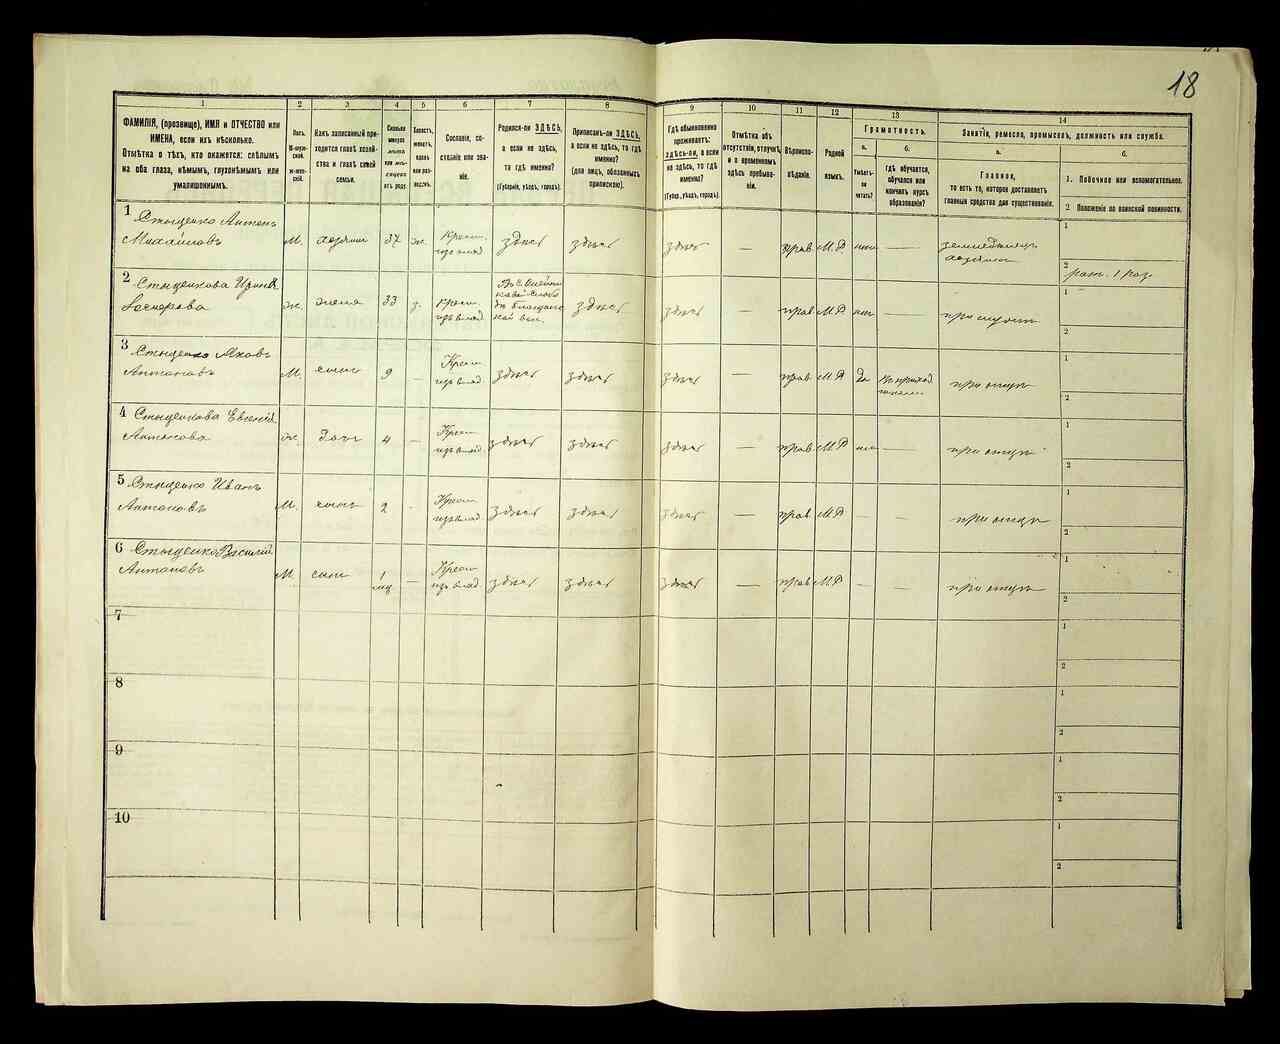 18
1
2
3
4
5
6
7
8
9
10
11
12
13
14
ФАМИЛІЯ, (прозвище), ИМЯ и ОТЧЕСТВО или
ИМЕНА, если ихъ нѣсколько.
Отмѣтка о тѣхъ, кто окажется: слѣпымъ
на оба глаза, нѣмымъ, глухонѣмымъ или
умалишоннымъ.
Полъ.
М-муж-
ской.
Ж-жен-
скій.
Какъ записанный при-
ходится главѣ хозяй-
ства и главѣ своей
семьи.
Сколько
минуло
лѣтъ
или мѣ-
сяцевъ
отъ роду.
Холостъ,
женатъ,
вдовъ
или раз-
веденъ.
Сословіе, со-
стояніе или зва-
ніе.
Родился-ли ЗДѢСЬ,
а если не здѣсь,
то гдѣ именно?
(Губернія, уѣздъ, городъ).
Приписанъ-ли ЗДѢСЬ,
а если не здѣсь, то гдѣ
именно?
(для лицъ, обязанныхъ
припискою).
Гдѣ обыкновенно
проживаетъ:
ЗДѢСЬ-ли, а если
не здѣсь, то гдѣ
именно?
(Губерн., уѣздъ, городъ).
Отмѣтка объ
отсутствіи, отлучкѣ
и о временномъ
здѣсь пребыва-
ніи.
Вѣроиспо-
вѣданіе.
Родной
языкъ.
Грамотность.
а.
б.
Умѣетъ-
ли
читать?
Гдѣ обучается,
обучался или
кончилъ курсъ
образованія?
Занятіе, ремесло, промыселъ, должность или служба.
а.
б.
Главное,
то есть то, которое доставляетъ
главныя средства для существованія.
1. Побочное или вспомогательное.
2 Положеніе по воинской повинности.
1 Стыценко Антонъ
Михайловъ
М. хозяинъ 37 ж. Крест.
изъ влад здѣсь здѣсь здѣсь — прав М.Р нѣт —
земледѣлецъ
хозяинъ
1
2 рат. 1 раз
2 Стыценкова Ирина
ж. жена 33 з. Крест.
изъ влад здѣсь здѣсь — прав М.Р нѣт — при мужѣ
1
2
3 Стыценко Яковъ
Антоновъ
М. сынъ 9 — Крест
изъ влад здѣсь здѣсь здѣсь — прав М.Р да
при отцѣ
1
2
4 Стыценкова Евгенія
Антонова
ж. дочь 4 — Крест
изъ влад. здѣсь здѣсь здѣсь — прав М.Р нѣт — при отцѣ
1
2
5 Стыценко Иванъ
Антоновъ
М. сынъ 2 - Крест
изъ влад здѣсь здѣсь здѣсь — прав М.Р — — при отцѣ
1
2
6 Стыценко Василій
Антоновъ
М. сынъ 1
мѣс — Крест
изъ влад здѣсь здѣсь здѣсь — прав М.Р — — при отцѣ
1
2
7
1
2
8
1
2
9
1
2
10
1
2